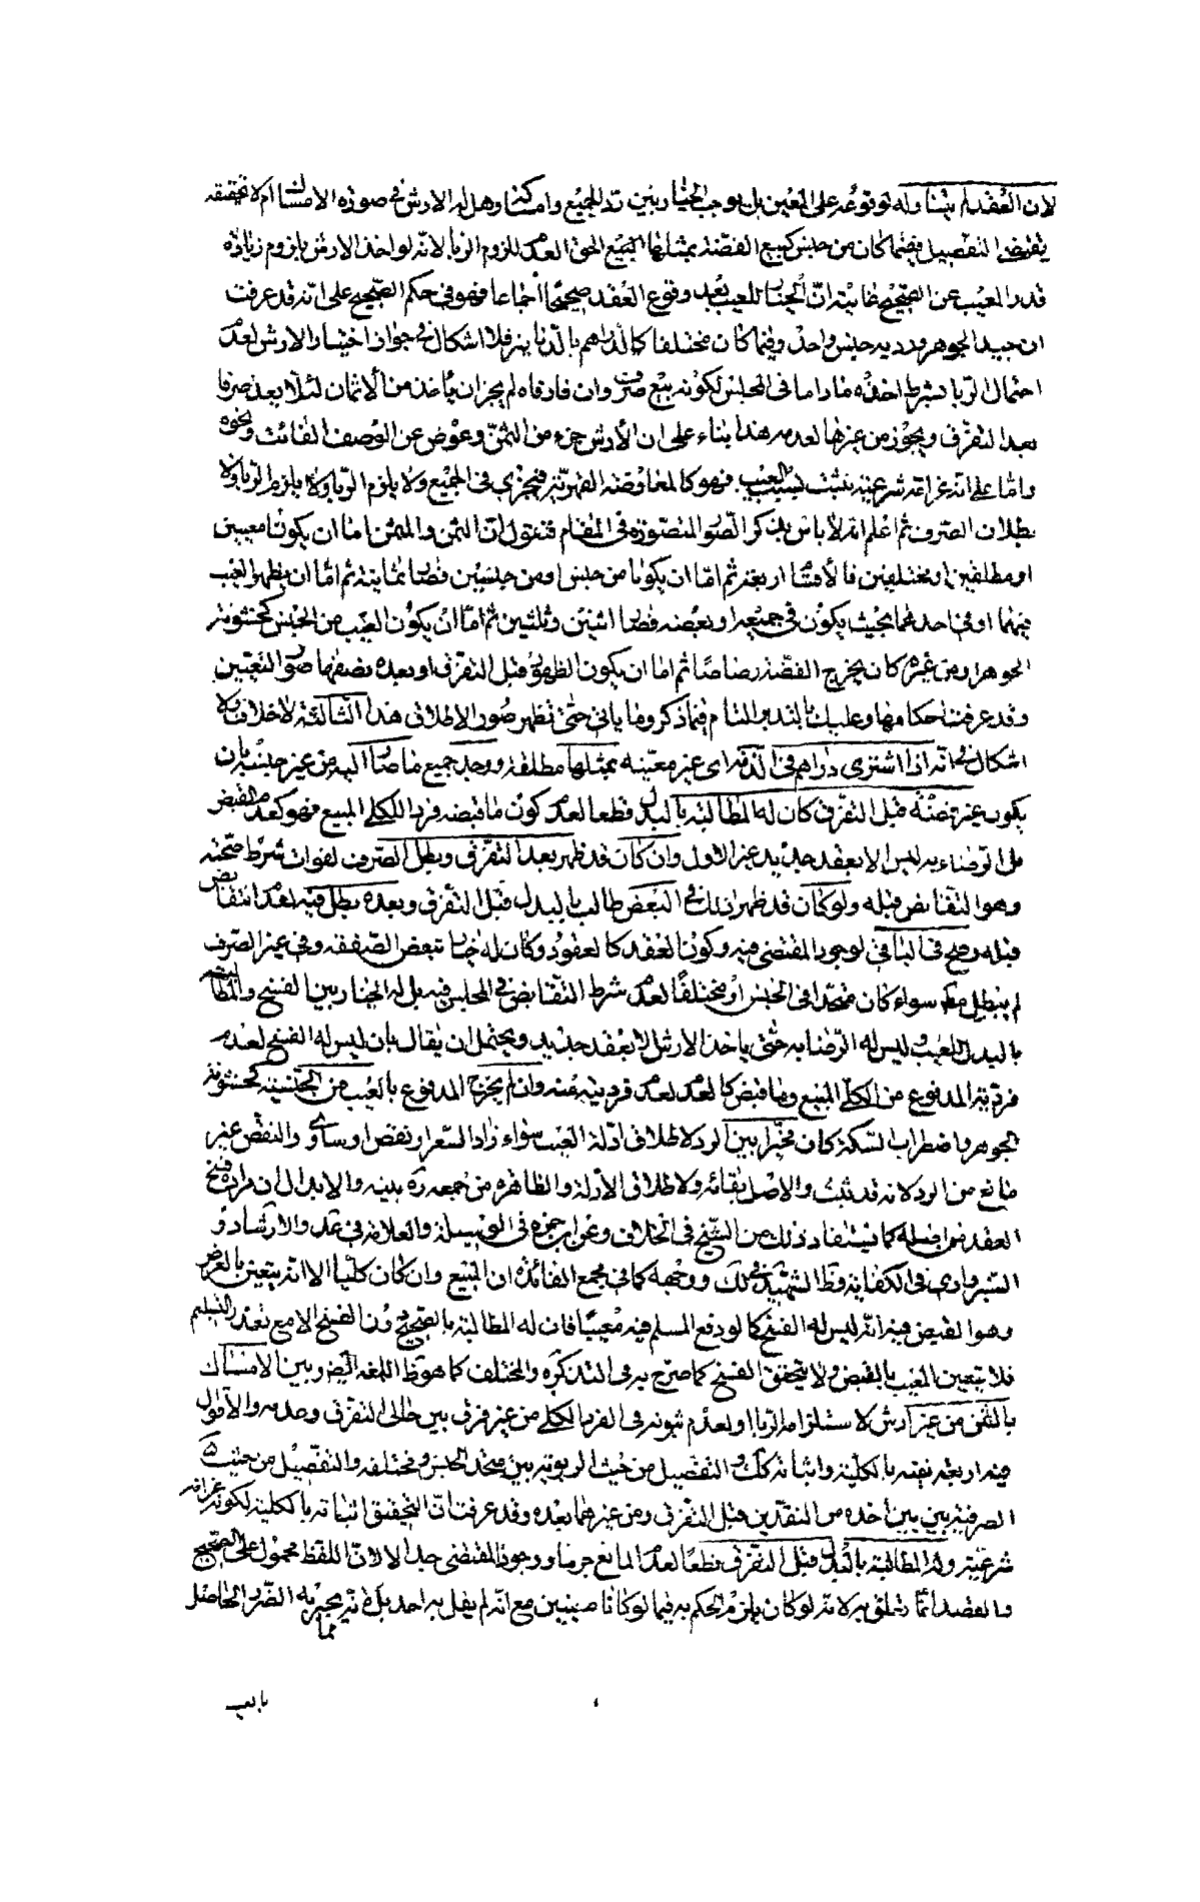 لان العقد لم يتناوله لوقوعه على المعين بل يوجب الخيار بين رد الجميع وامساكه وهل له الارش في صورة الامساك ام لا تحقيقه
يقتضي التفصيل ففيما كان من جنس كبيع الفضة بمثلها البيع العدم للزوم الربا لانه لو اخذ الارش يلزم زيادة
قدر العيب عن الصحيح غايته ان الخيار للعيب بعد وقوع العقد صحيحا اجماعا فهو في حكم الصحيح على انه قد عرفت
ان جيد الجوهر ورديه جنس واحد وفيما كان مختلفا كالدراهم بالدنانير فلا اشكال في جواز اختيار الارش لعدم
احتمال الربا بشرط اخذه ما داما في المجلس لكونه بيع صرف وان فارقاه لم يجز ان ياخذ من الاثمان لئلا يعد صرفا
بعد التفرق ويجوز من غيرها لعدمه هذا بناء على ان الارش جزء من الثمن وعوض عن الوصف الفائت ونحوه
واما على انه غرامة شرعية يثبت بسبب العيب فهو كالمعاوضة القهرية فيجزي في الجميع ولا يلزم الربا ولا
بطلان الصرف ثم اعلم انه لا باس بذكر الصور المتصورة في المقام فنقول ان الثمن والمثمن اما ان يكونا معيبين
او مطلقين او مختلفين فالاقسام اربعة ثم اما ان يكونا من جنس او من جنسين فصار ثمانية ثم اما ان يظهر العيب
فيهما او في احدهما بحيث يكون في جميعه او بعضه فصار اثنين وثلثين ثم اما ان يكون العيب من الجنس كخشونة
الجوهر او من غيره كان يخرج الفضة رصاصا ثم اما ان يكون الظهور قبل التفرق او بعده نصفها صور التعيين
وقد عرفت احكامها وعليك بالتدبر التام فيما ذكر وما ياتي حتى تظهر صور الاطلاق هذا الثالثة لا خلاف ولا
اشكال في انه اذا اشترى دراهم في الذمة اي غير معينة بمثلها مطلقة ووجد جميع ما صار اليه من غير جنسه بان
يكون غير فضة قبل التفرق كان له المطالبة بالبدل قطعا لعدم كون ما قبضه فردا للكلي المبيع فهو كعدم القبض
بل الرضاء به ليس الا بعقد جديد غير الاول وان كان قد ظهر بعد التفرق وبطل الصرف لفوات شرط صحته
وهو التقابض قبله ولو كان قد ظهر ذلك في البعض طالب بالبدل قبل التفرق وبعده بطل فيه لعدم التقابض
قبله وصح في الباقي لوجود المقتضى فيه وكون العقد كالعقود وكان له خيار تبعض الصفقة وفي غير الصرف
لم يبطل مطلقا سواء كان متحدا في الجنس او مختلفا لعدم شرط التقابض في المجلس فيه بل له الخيار بين الفسخ والمطالبة
بالبدل للعيب وليس له الرضا به حتى ياخذ الارش الا بعقد جديد ويحتمل ان يقال بان ليس له الفسخ لعدم
فردية المدفوع من الكلي المبيع وما قبض كالعدم لعدم فرديته منه وان لم يخرج المدفوع بالعيب من الجنسية كخشونة
الجوهر واضطراب السكة كان مخيرا بين الرد لاطلاق ادلة العيب سواء زاد السعر او نقص او ساوى والنقص غير
مانع من الرد لانه قد ثبت والاصل بقائه ولاطلاق الادلة والظاهر من جمعه ره بينه والابدال ان مراده فسخ
العقد من اصله كما يستفاد ذلك من الشيخ في الخلاف وعن ابن حمزة في الوسيلة والعلامة في عد والارشاد و
السبزواري في الكفاية ووجهه كما في مجمع الفائدة ان المبيع وان كان كليا الا انه يتعين بالعرض
وهو القبض فيه انه ليس له الفسخ كما لو دفع المسلم فيه معيبا فان له المطالبة بالصحيح دون الفسخ الا مع تعذر التسليم
فلا يتعين المعيب بالقبض ولا يتحقق الفسخ كما صرح به في التذكرة والمختلف كما هو وبين الامساك
بالثمن من غير ارش لاستلزامه الربا او لعدم ثبوته في الفرد الكلي من غير فرق بين حالي التفرق وعدمه والاقوال
فيه اربعة نفيه بالكلية واثباته كك والتفصيل من حيث الربوية بين متحد الجنس ومختلفه والتفصيل من حيث
الصرفية بين اخذه من النقدين قبل التفرق ومن غيرهما بعده وقد عرفت ان التحقيق اثباته بالكلية لكونه غرامة
شرعية وله المطالبة بالبدل قبل التفرق قطعا لعدم المانع جزما ووجود المقتضى جدا الا لان اللفظ محمول على الصحيح
والعقد انما يتعلق به لانه لو كان يلزم الحكم به فيما لو كانا معينين مع انه لم يقل به احد بل لانه يجبر به الضرر الحاصل